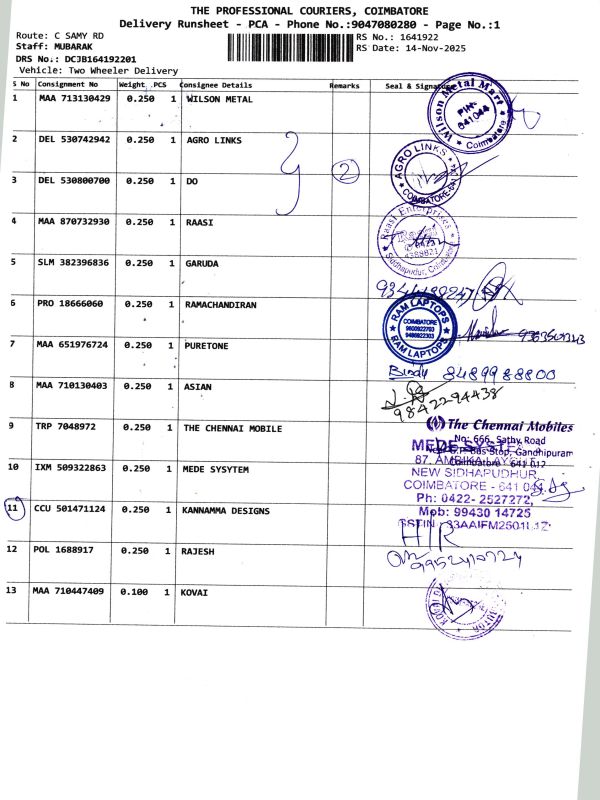 THE PROFESSIONAL COURIERS, COIMBATORE
Delivery Runsheet - PCA - Phone No.:9047080280 - Page No.:1
Route: C SAMY RD
RS No.: 1641922
Staff: MUBARAK
RS Date: 14-Nov-2025
DRS No.: DCJB164192201
Vehicle: Two Wheeler Delivery
S No Consignment No Weight PCS Consignee Details Remarks Seal & Signature
1 MAA 713130429 0.250 1 WILSON METAL
Wilson Metal Mart PIN: 641044 Coimbatore
2 DEL 530742942 0.250 1 AGRO LINKS
AGRO LINKS COIMBATORE-641
3 DEL 530800700 0.250 1 DO 2
4 MAA 870732930 0.250 1 RAASI
Raasi Enterprises Siddhapudur, Coimbatore
5 SLM 382396836 0.250 1 GARUDA
6 PRO 18666060 0.250 1 RAMACHANDIRAN
RAM LAPTOPS COIMBATORE RAM LAPTOPS
7 MAA 651976724 0.250 1 PURETONE
Bindy 8489988800
8 MAA 710130403 0.250 1 ASIAN
9842294438
9 TRP 7048972 0.250 1 THE CHENNAI MOBILE
The Chennai Mobiles
No: 666, Sathy Road
Bus Stop, Gandhipuram
Coimbatore - 641 012
10 IXM 509322863 0.250 1 MEDE SYSYTEM
MEDE SYSTEM
87, AMBIKA LAYOUT
NEW SIDHAPUDHUR,
COIMBATORE - 641 044
Ph: 0422- 2527272,
Mob: 99430 14725
11 CCU 501471124 0.250 1 KANNAMMA DESIGNS
12 POL 1688917 0.250 1 RAJESH
13 MAA 710447409 0.100 1 KOVAI